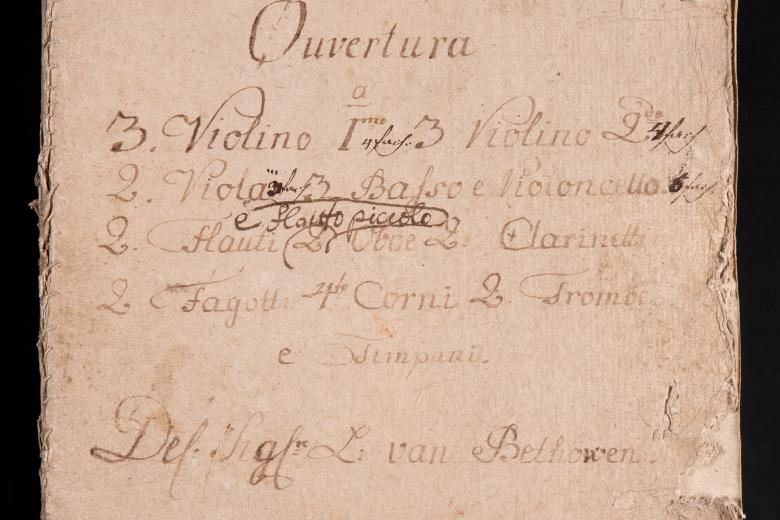 Ouvertura
a
3. Violino I^mo 4fach. 3 Violino 2^do 4fach
2. Viola 3fach 3 Basso e Violoncello. 5fach
e flauto piccolo
2. Flauti 2. Oboe 2. Clarinetti
2 Fagotti 4^tro Corni 2. Trombe
e Timpani.
Del. Sig^re L: van Bethowen.